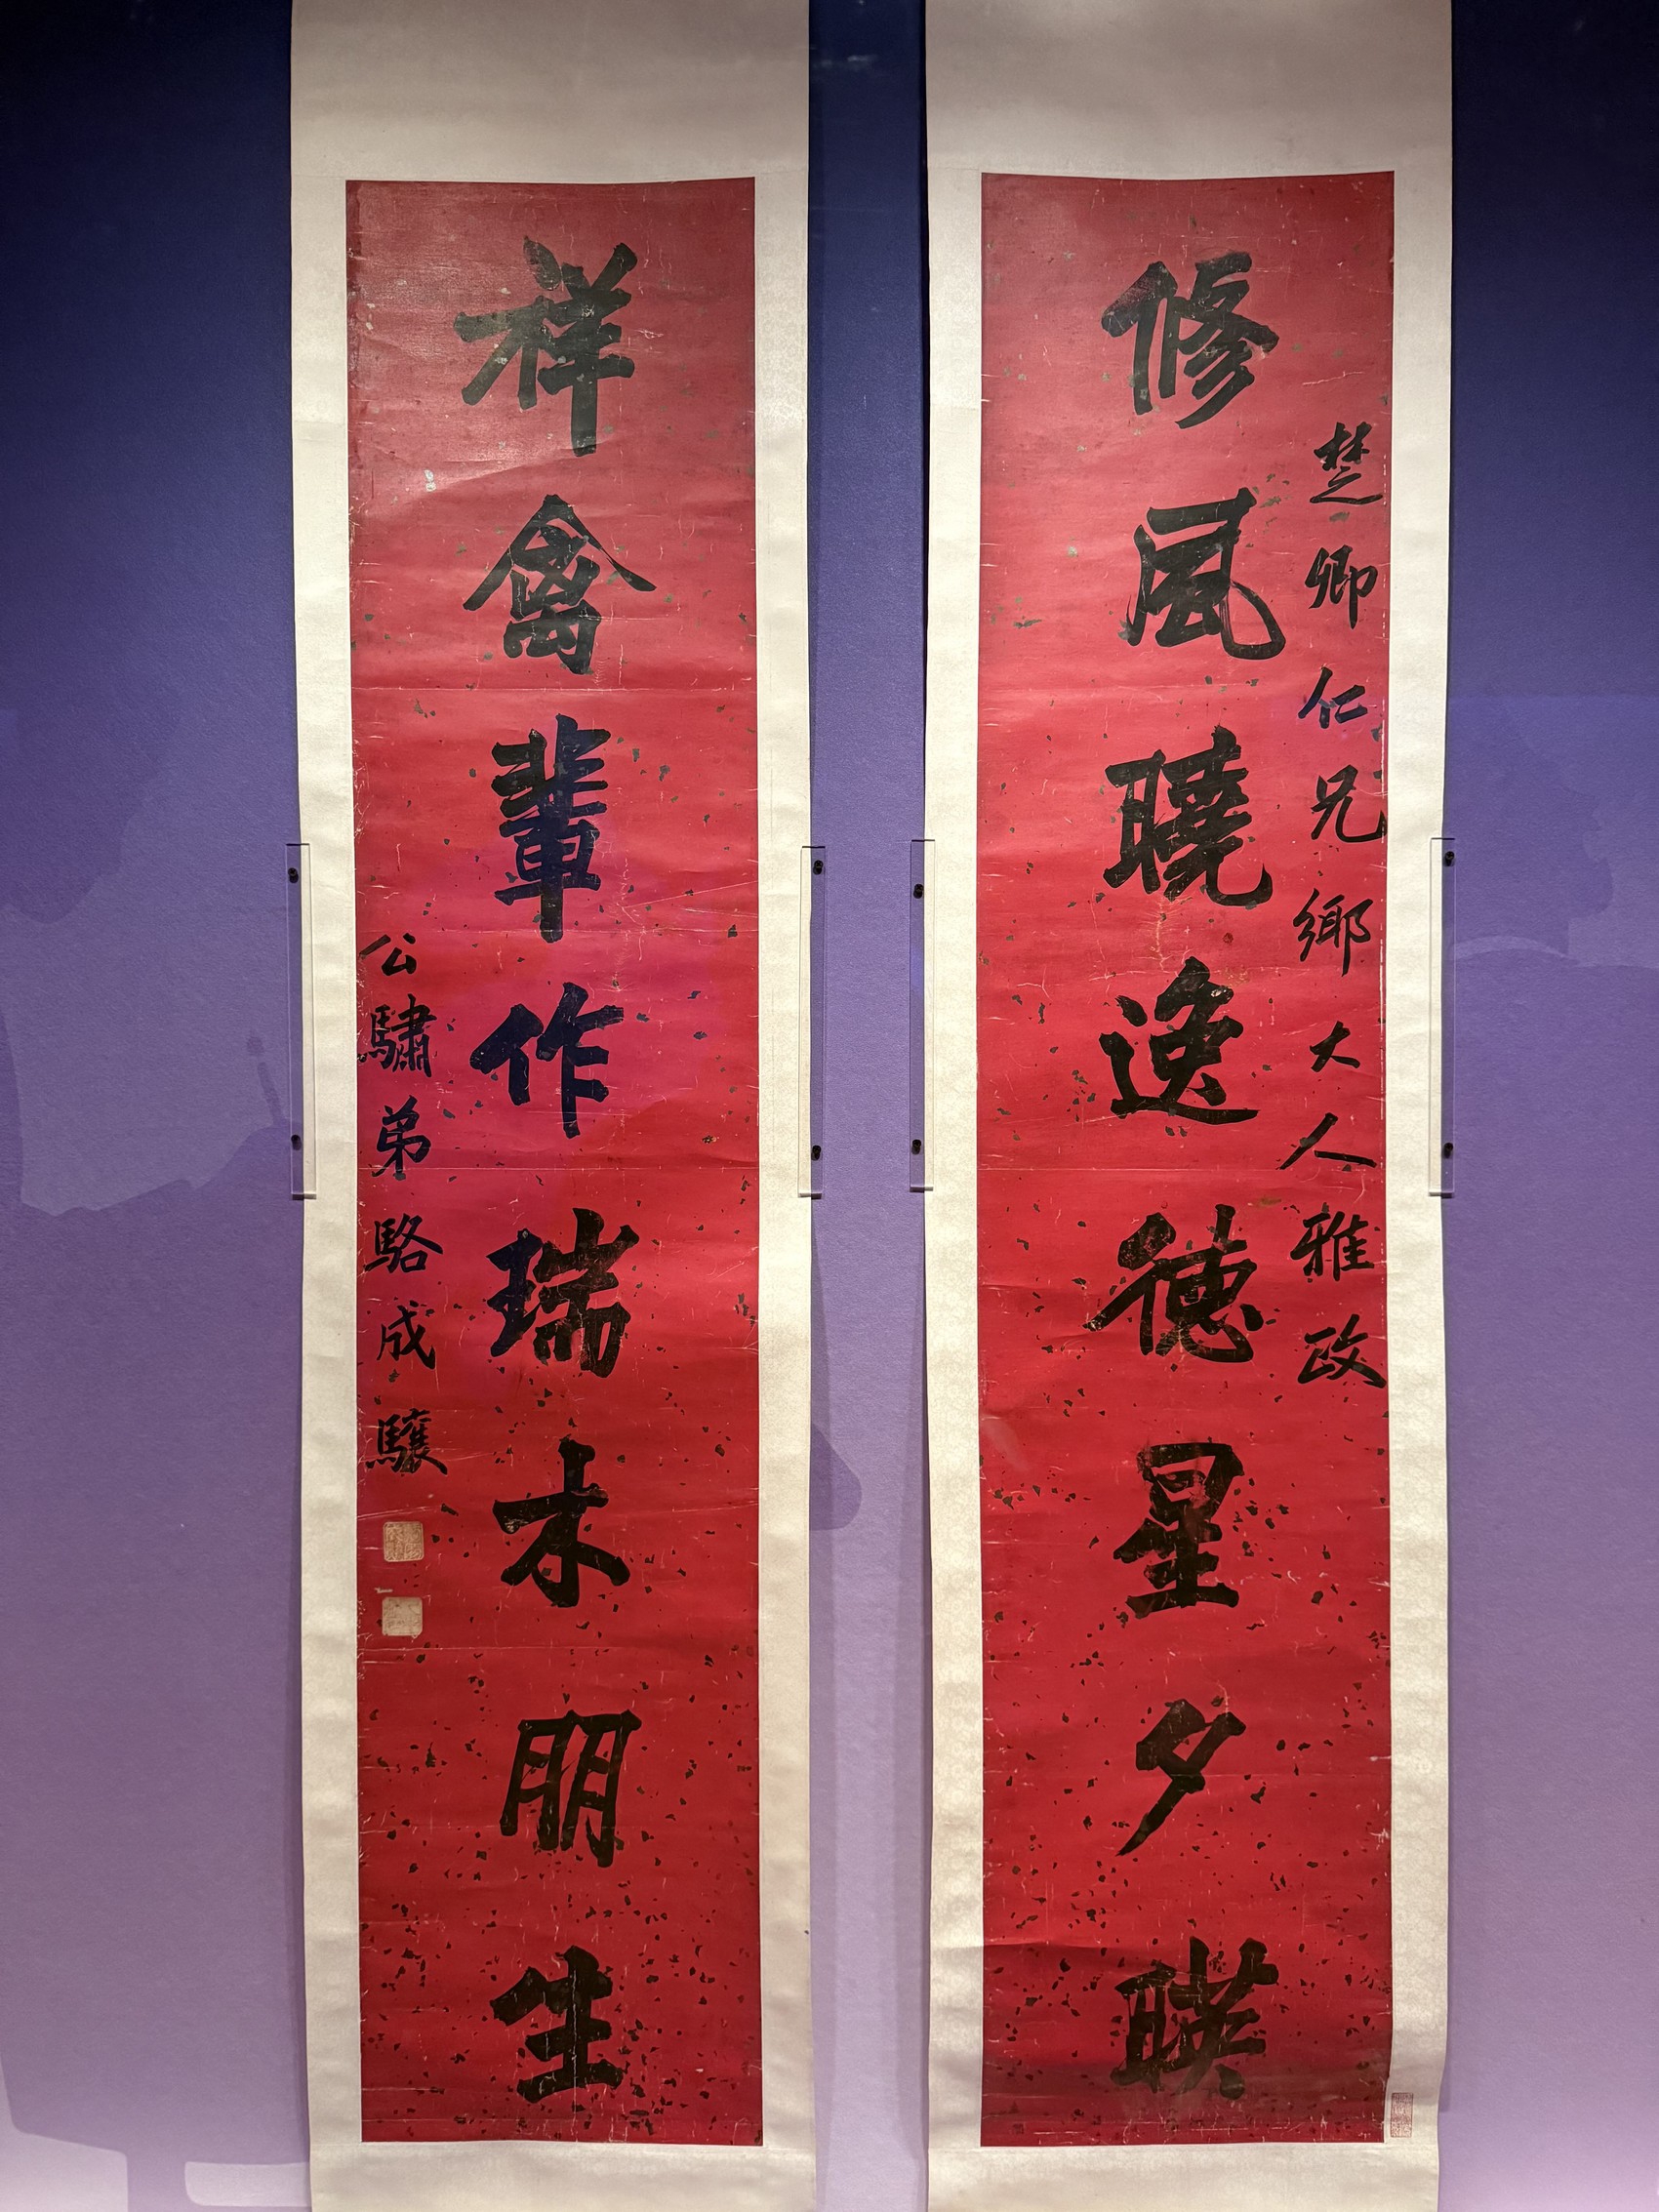 楚卿仁兄鄉大人雅政
修風曉逸德星夕暎
祥禽輩作瑞木朋生
公驌弟駱成驤